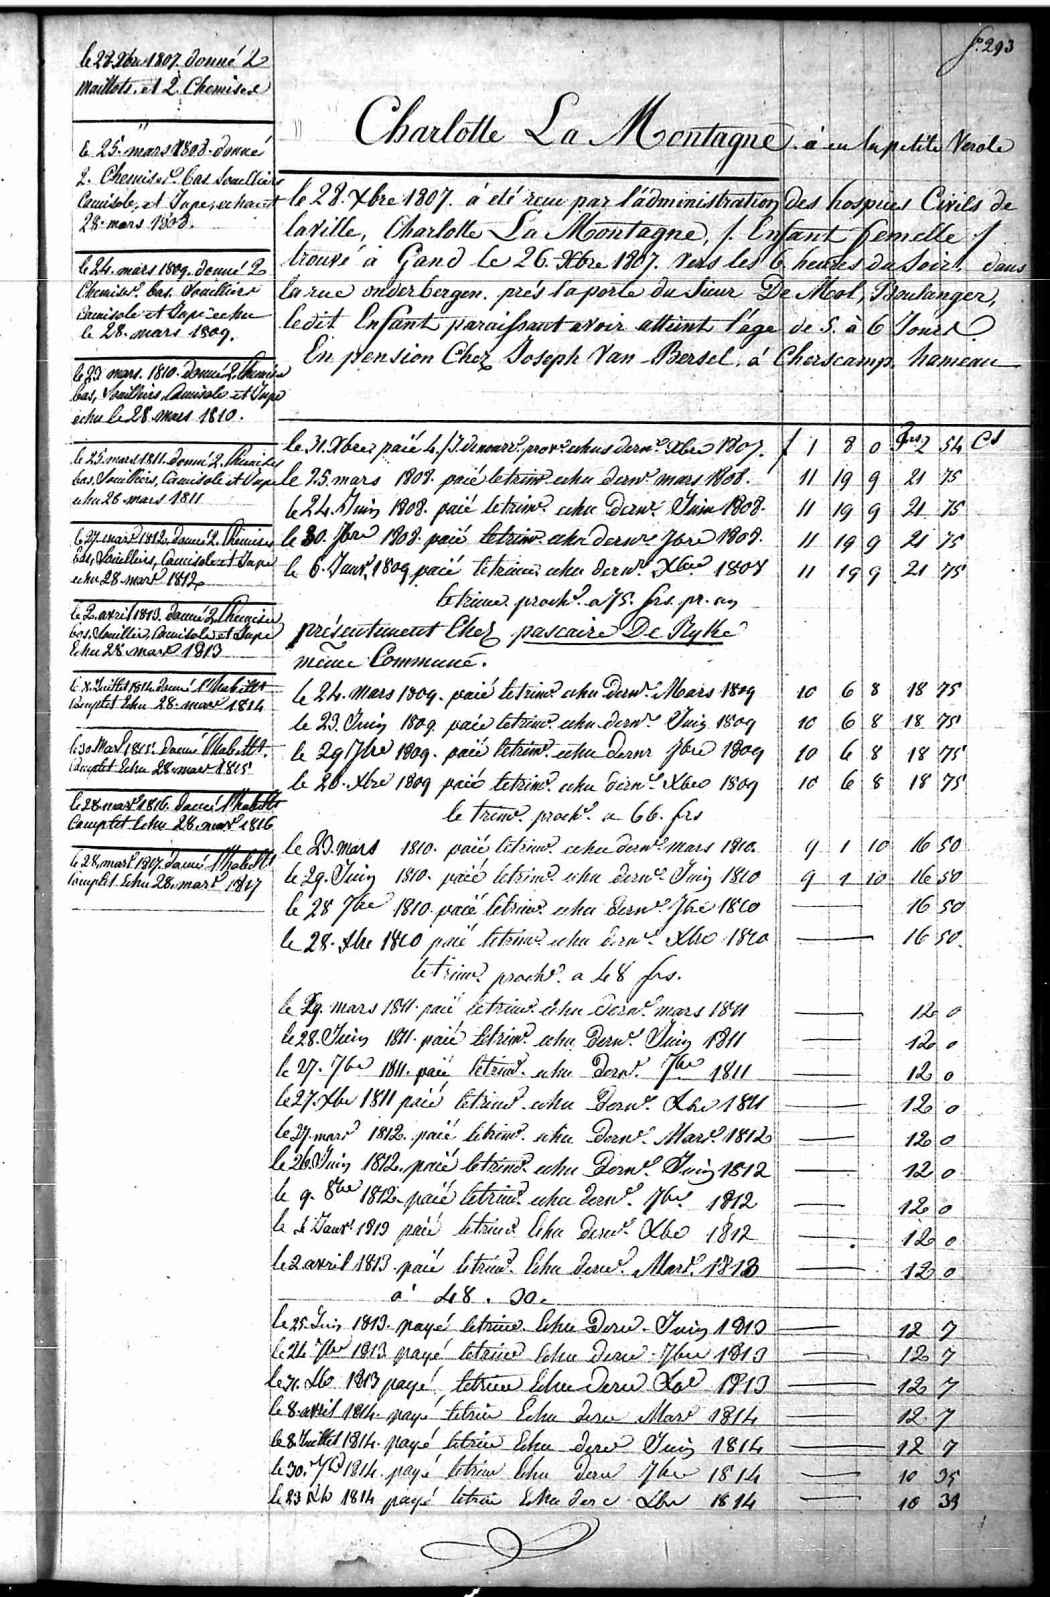 fo. 293
le 28 Xbre 1807. donné 2
maillots. et 2 Chemises
le 25. mars 1808. donné
2. Chemises. bas souilliers
Camisole, et Jupe, echu le
28. mars 1808.
le 24. mars 1809. donné 2
Chemises. bas. souilliers
camisole et Jupe echu
le 28. mars 1809.
le 23 mars. 1810. donné 2. Chemises
bas, souilliers, Camisole et Jupe
echu le 28. mars 1810.
le 25. mars 1811. donné 2. Chemises
bas, souilliers, Camisole et Jupe
echu 28 mars 1811
le 27. mars 1812. donné 2. Chemises
bas, souilliers, Camisole et Jupe
echu 28 mars 1812
le 2. avril 1813. donné 2 Chemises
bas, souillier, Camisole et Jupe
Echu 28 mars 1813
le 8. Juillet 1814. donné l'habillt
complet Echu 28. mars 1814
le 30 Mars 1815. donné l'habillt.
complet Echu 28. mars 1815.
le 28 mars 1816. donné l'habillt
Complet Echu 28. mars 1816
le 28. mars 1817. donné l'habillt
complet Echu 28. mars 1817
Charlotte La Montagne. à eu la petite Verole
le 28. Xbre 1807. á été recu par l'administration des hospices Civils de
la ville, Charlotte La Montagne, /. Enfant femelle /
trouvé à Gand le 26. Xbre 1807. vers les 6 heures du Soir. dans
la rue onderbergen. prés la porte du Sieur De Mol, Boulanger,
ledit Enfant paraissant avoir atteint l'age de 5. à 6 Jours
En pension Chez Joseph Van Bersel. á Cherscamp, hameau
le 31. Xbre paié 4. /3. de nourr. prov. echus dernr. Xbre 1807. £ 1 8 0 frs 2 54 Cs
le 25. mars 1808. paié le trimr. echu dernr. mars 1808. 11 19 9 21 75
le 24. Juin 1808. paié le trimr. echu dernr. Juin 1808. 11 19 9 21 75
le 30. 7bre 1808. paié le trimr. echu dernr. 7bre 1808. 11 19 9 21 75
le 6. Janvr. 1809. paié le trimre. echu dernr. Xbre 1808 11 19 9 21 75
le trime. proch. a 75. frs. pr. an
présentement Chez pascaire De Rykè
même Commune.
le 24. Mars 1809. paié le trimr. echu dernr. Mars 1809 10 6 8 18 75
le 23. Juin 1809. paié le trimr. echu dernr. Juin 1809 10 6 8 18 75
le 29 7bre 1809. paié le trimr. echu dernr 7bre 1809 10 6 8 18 75
le 20. Xbre 1809 paié le trimr. echu dernr. Xbre 1809 10 6 8 18 75
le trimr. proch. a 66. frs
le 23. mars 1810. paié le trimr. echu dernr. mars 1810. 9 1 10 16 50
le 29. Juin 1810. paié le trimr. echu dernr. Juin 1810 9 1 10 16 50
le 28 7bre 1810. paié le trimr. echu dernr. 7bre 1810 16 50
le 28. Xbre 1810 paié le trimr. echu dernr. Xbre 1810 16 50.
le trimr. proch. a 48 frs.
le 29. mars 1811. paié le trimr. echu dernr. mars 1811 12 0
le 28. Juin 1811. paié le trimr. echu Dernr. Juin 1811 12 0
le 27. 7bre 1811. paié le trimr. echu Dernr. 7bre 1811 12 0
le 27. Xbre 1811 paié le trimr. echu Dernr. Xbre 1811 12 0
le 27. mars 1812. paié le trimr. echu Dernr. Mars. 1812 12 0
le 26. Juin 1812. paié le trimr. echu Dernr. Juin 1812 12 0
le 9. 8bre 1812. paié le trimr. echu dernr. 7bre. 1812 12 0
le Janvr. 1813 paié le trimr. Echu dernr. Xbre 1812 12 0
le 2 avril 1813. paié le trimr. Echu dernr. Mars. 1813 12 0
à 48. 30.
le 25. Juin 1813. payé le trimr. Echu Dern. Juin 1813 12 7
le 24. 7bre 1813 payé le trimr Echu dern. 7bre 1813 12 7
le 31. Xbr 1813 payé le trim Echu dern Xbre 1813 12 7
le 8. avril 1814. payé le trim Echu dern Mars 1814 12. 7
le 8. Juillet 1814. payé le trim Echu dern Juin 1814 12 7
le 30. 7bre 1814. payé le trim Echu dern 7bre 1814 10 35
le 23 Xbr 1814 payé le trim Echu dern Xbre 1814 10 39